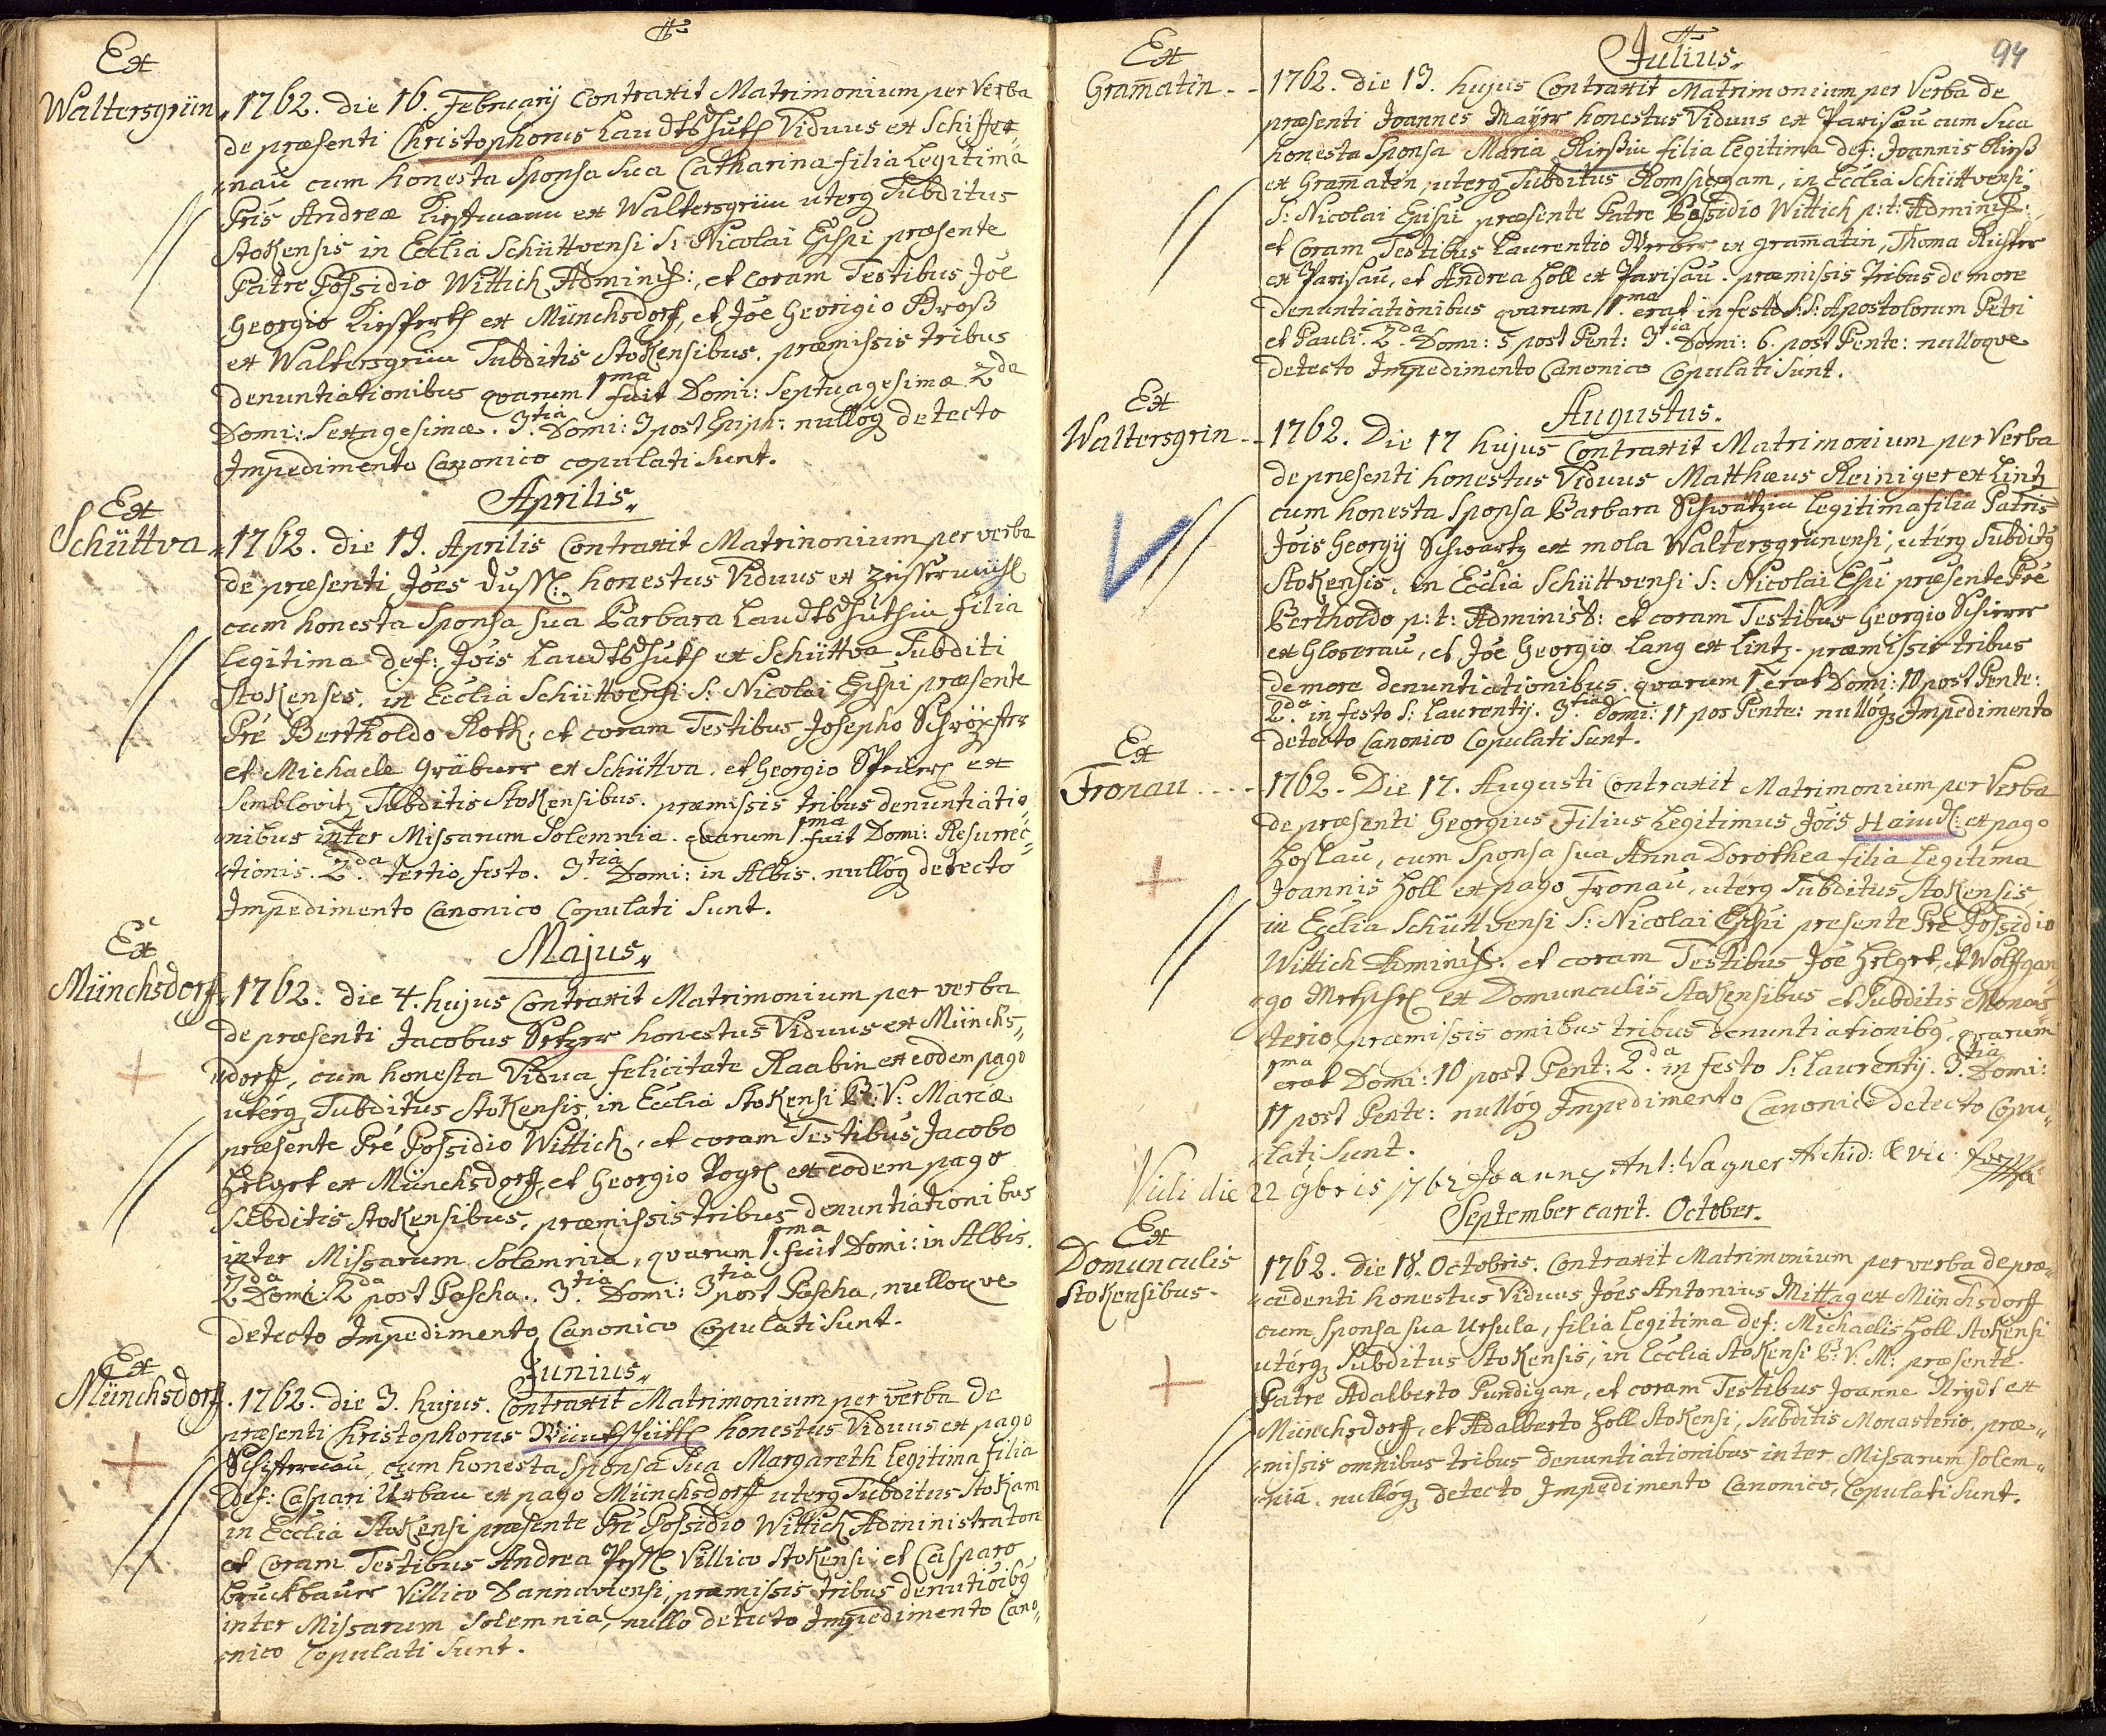 Ex
Waltersgrün
1762. die 16. Februarij Contraxit Matrimonium per Verba
de præsenti Christophorus Landtshuth Viduus ex Schiffer,,
,,nau cum honesta Sponsa sua Catharina filia Legitima
Pris Andreæ ex Waltersgrün uterq Subditus
Stokensis in Ecclia Schüttvensi S: Nicolai Epispi præsente
Patre Possidio Wittich Administ:, et coram Testibus Joe
Georgio ex Münchsdorf, et Joe Georigio Broß
ex Waltersgrün Subditis Stokensibus. præmissis tribus
denuntiationibus qvarum 1ma fuit Domi: Septuagesimæ. 2da
Domi: Sexagesimæ. 3tia. Domi: 3 post Epiph: nullóq detecto
Impedimento Canonico copulati Sunt.
Aprilis,,
Ex
Schüttva
1762. die 19. Aprilis Contraxit Matrinonium per verba
de præsenti Jóes honestus Viduus ex
cum honesta Sponsa sua Barbara Landtshuthin filia
Legitima def: Jois Landtshuth ex Schüttva Subditi
Stokenses, in Ecclia Schüttvensi S: Nicolai Epispi præsente
Pré Bertholdo Roth, et coram Testibus Josepho
et Michaele Gräbner ex Schüttva. et Georgio ex
Semblovitz Subditis Stokensibus. præmissis tribus denuntiatio,,
,,nibus inter Missarum Solemnia. Qvarum 1ma fuit Domi: Resurrec,,
,,tionis. 2da. tertio festo. 3tia. Domi: in Albis. nullóq detecto
Impedimento Canonico Copulati Sunt.
Majus,,
Ex
Münchsdorf
1762. die 4. hujus Contraxit Matrimonium per verba
de præsenti Jacobus Setzer honestus Viduus ex Münchs,,
,,dorff, cum honesta Vidua felicitate Raabin ex eodem pago
utérq Subditus Stokensis, in Ecclia Stokensi B: V: Mariæ
præsente Pré Possidio Wittich, et coram Testibus Jacobo
Helget ex Münchsdorff, et Georgio ex eodem pago
Subditis Stokensibus, præmissis tribus denuntiationibus
inter Missarum Solemnia, qvarum 1ma. fuit Domi: in Albis.
2da Domi: 2da post Pascha. 3tia. Domi: 3tia post Pascha, nulloqve
detecto Impedimento Canonico Copulati Sunt.
Junius,,
Ex
Münchsdorf
1762. die 3. hujus. Contraxit Matrimonium per verba de
præsenti Christophorus honestus Viduus ex pago
Schiffernau, cum honesta Sponsa sua Margareth Legitima filia
Def: Caspari Urban ex pago Münchsdorff uterq Subditus Stokam
in Ecclia Stokensi præsente Pré Possidio Wittich Administratore
et Coram Testibus Andrea Villico Stokensi, et Casparo
Bruckbaurr Villico Dannaviensi, præmissis tribus
inter Missarum Solemnia, nullo detecto Impedimento Cano,,
,,nico Copulati Sunt.
94
Julius,,
Ex
Gramatin
1762. die 13. hujus Contraxit Matrimonium per Verba de
præsenti Joannes Maÿer honestus Viduus ex Parisau cum sua
honesta Sponsa Maria filia legitima def: Joannis
ex Gramatin, uterq Subditus, in Ecclia Schüttvensi
S: Nicolai præsente Patre Possidio Wittich p: t: Administ:
et Coram Testibus Laurentio ex gramatin, Thoma
ex Parisau, et Andrea Holl ex Parisau. præmissis tribus de more
denuntiationibus qvarum 1ma. erat in festo S:S: Apostolorum Petri
et Pauli. 2da. Domi: 5 post Pent: 3tia. Domi: 6. post Pente: nulloqve
detecto Impedimento Canonico Copulati Sunt.
Augustus.,
Ex
Waltersgrin
1762. Die 17 hujus Contraxit Matrimonium per Verba
de præsenti honestus Viduus Matthæus Reiniger ex Lintz
cum honesta Sponsa Barbara Schwätzin Legitima filia Patris
Jois Georgij Schwartz ex mola Waltersgrünensi, utérq Subditq
Stokensis, in Ecclia Schüttvensi S: Nicolai Epi præsente Pré
Bertholdo p: t: Administ: et coram Testibus Georgio
ex Gloserau, et Joe Georgio Lang ex Lintz. præmissis tribus
de more denuntiationibus. qvarum 1 erat Domi: 10 post Pente:
2da. in festo S: Laurentij. 3tia. Domi: 11 pos Pente: nullóq Impedimento
detecto Canonico Copulati Sunt.
Ex
Fronau
1762. Die 17. Augusti Contraxit Matrimonium per Verba
de præsenti Georgius Filius Legitimus Jois Haindl: ex pago
Hoslau, cum Sponsa sua Anna Dorothea filia Legitima
Joannis Holl ex pago Fronau, utérq Subditus Stokensis
in Ecclia Schüttvensi S: Nicolai Epispi presente Pré Possidio
Wittich Administ: et coram Testibus Joe Helget, et Wolffgan
,,go ex Domunculis Stokensibus et Subditis Monas
,,terio, præmissis omibus tribus denuntiationibq, qvarum
1ma erat Domi: 10 post Pent: 2da. in festo S: Laurentij. 3tia. Domi:
11 post Pente: nullóq Impedimento Canonico detecto Copu,,
,,lati Sunt.
Vidi die 22 9bris 1762 Joannes Ant: Wagner Archid: & vic:
September caret. October.
Ex
Domunculis
Stokensibus
1762. die 18. Octobris. Contraxit Matrimonium per verba de præ,,
,,cedenti honestus Viduus Jóes Antonius Mittag ex Münchsdorff
cum Sponsa sua Ursula, filia legitima def: Michaelis Holl Stokensi
utérq Subditus Stokensis, in Ecclia Stokensi B: V: M: præsente
Patre Adalberto Pundigan, et coram Testibus Joanne ex
Münchsdorff, et Adalberto Holl Stokensi, Subditis Monasterio, præ,,
,,missis omnibus tribus denuntiationibus inter Missarum Solem,,
,,nia. nullóq detecto Impedimento Canonico, Copulati Sunt.